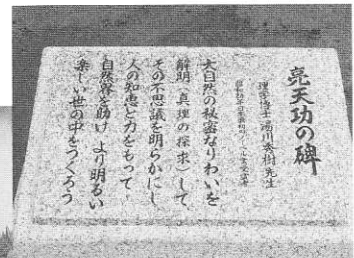 亮天功の碑
理学博士 湯川秀樹先生
大自然の秘密なりわいを
解明(真理の探求)して、
その不思議を明らかにし
人の知恵と力をもって、
自然界を助け より明るい
楽しい世の中をつくろう